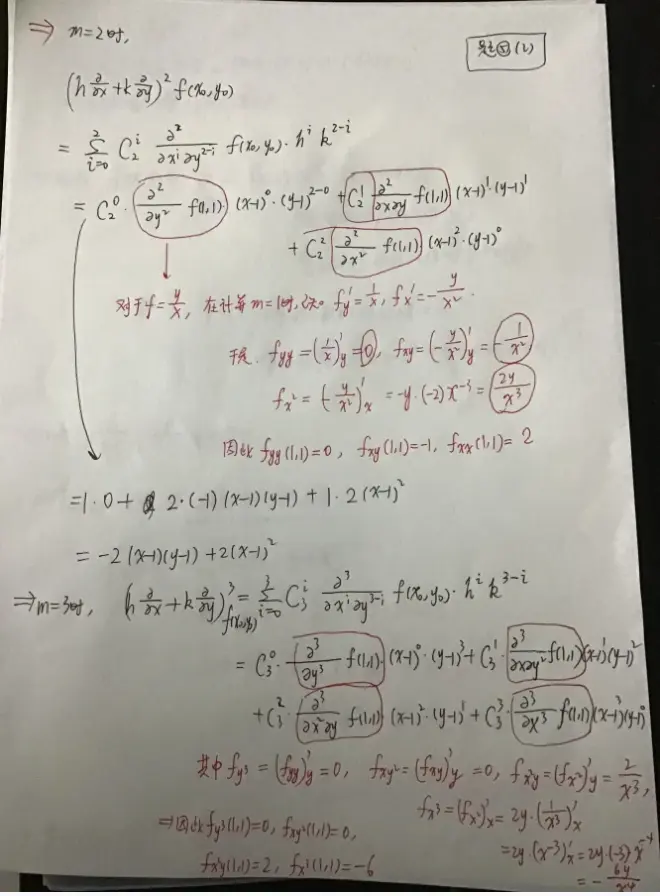 ⇒ m=2时,
(2)
(h ∂/∂x + k ∂/∂y)² f(x₀,y₀)
= Σ_{i=0}^{2} C₂ⁱ ∂²/∂xⁱ∂y²⁻ⁱ f(x₀,y₀)·hⁱ k²⁻ⁱ
= C₂⁰· ∂²/∂y² f(1,1) (x-1)⁰·(y-1)²⁻⁰ + C₂¹ ∂²/∂x∂y f(1,1) (x-1)¹·(y-1)¹
+ C₂² ∂²/∂x² f(1,1) (x-1)²·(y-1)⁰
对于f=y/x, 在计算m=1时, 已知 f'y=1/x, f'x=-y/x².
于是. fyy=(1/x)'y=0, fxy=(-y/x²)'y=-1/x²
fx²=(-y/x²)'x =-y·(-2)x⁻³=2y/x³
因此 fyy(1,1)=0, fxy(1,1)=-1, fxx(1,1)=2
=1·0+ 2·(-1)(x-1)(y-1) + 1·2(x-1)²
= -2(x-1)(y-1)+2(x-1)²
⇒m=3时, (h ∂/∂x + k ∂/∂y)³ f(x₀,y₀) = Σ_{i=0}^{3} C₃ⁱ ∂³/∂xⁱ∂y³⁻ⁱ f(x₀,y₀)·hⁱ k³⁻ⁱ
= C₃⁰· ∂³/∂y³ f(1,1) (x-1)⁰·(y-1)³ + C₃¹· ∂³/∂x∂y² f(1,1)(x-1)¹(y-1)²
+C₃²· ∂³/∂x²∂y f(1,1) (x-1)²·(y-1)¹+C₃³· ∂³/∂x³ f(1,1)(x-1)³(y-1)⁰
其中 fy³=(fyy)'y=0, fxy²=(fxy)'y=0, fx²y=(fx²)'y=2/x³,
fx³=(fx²)'x=2y·(1/x³)'x
=2y·(x⁻³)'x=2y·(-3)x⁻⁴
=-6y/x⁴
⇒因此fy³(1,1)=0, fxy²(1,1)=0,
fx²y(1,1)=2, fx³(1,1)=-6